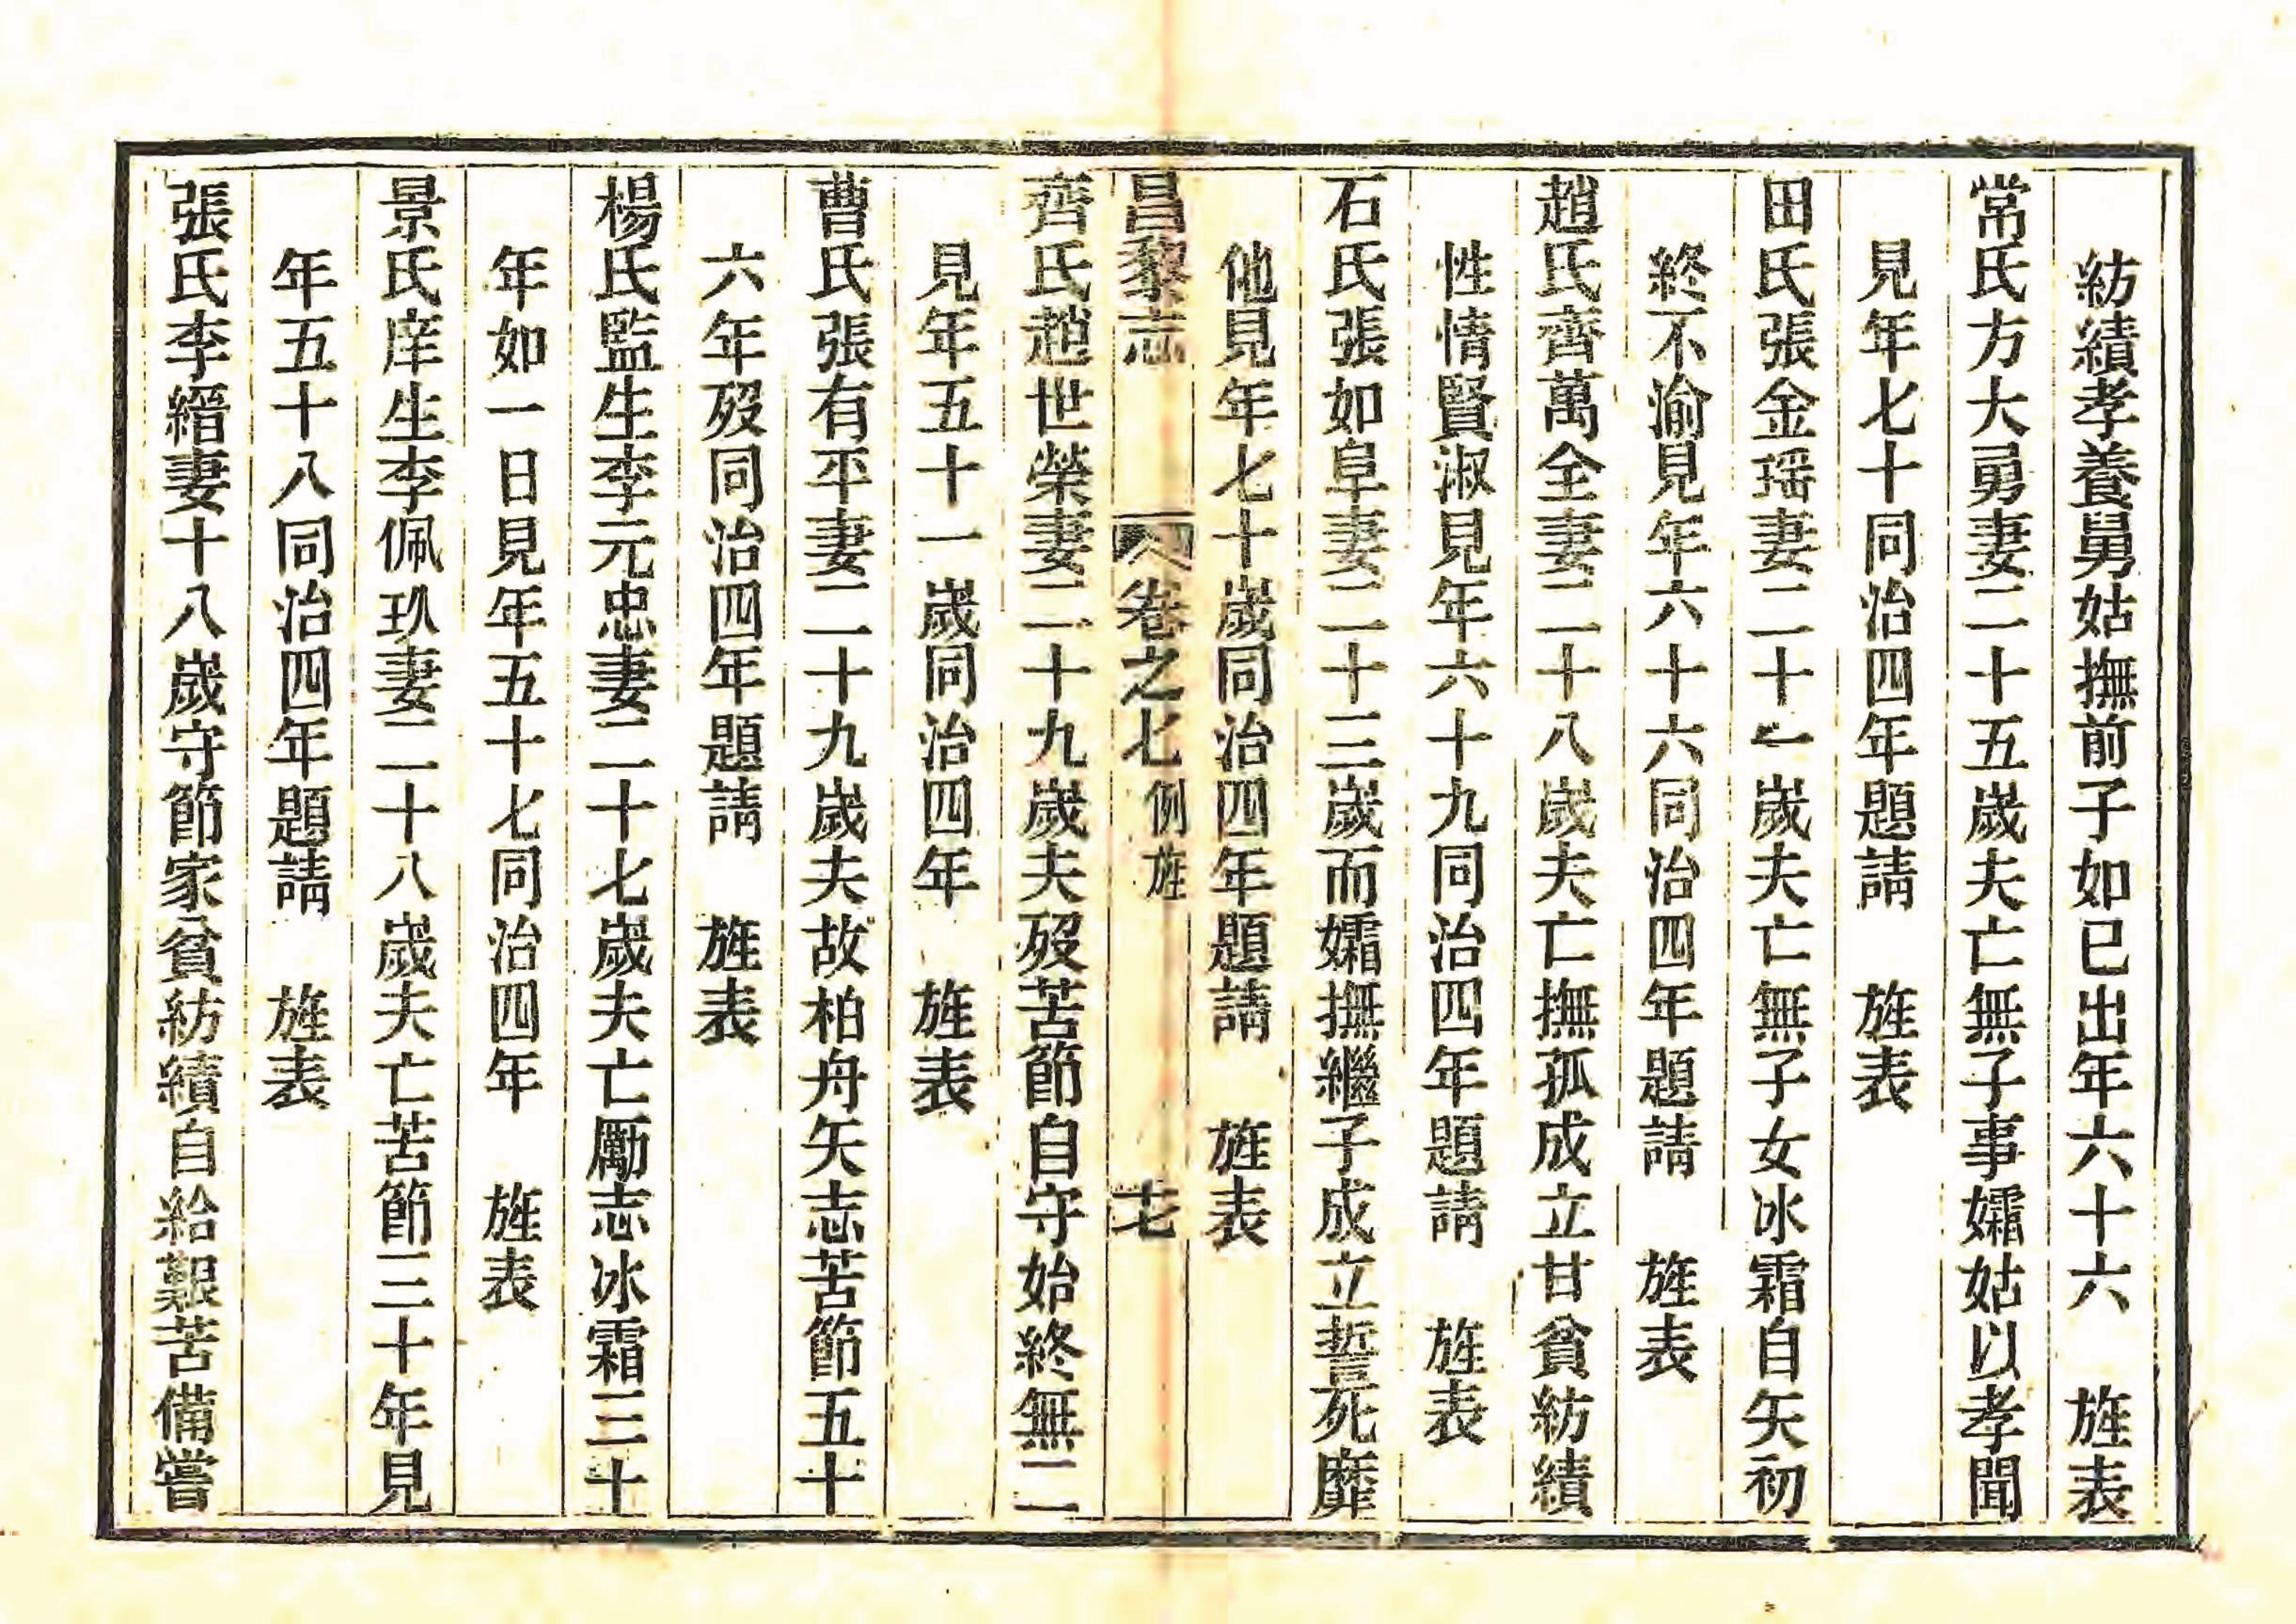 紡績孝養舅姑撫前子如已出年六十六　旌表
常氏方大勇妻二十五歲夫亡無子事孀姑以孝聞
見年七十同治四年題請　旌表
田氏張金瑶妻二十一歲夫亡無子女冰霜自矢初
終不渝見年六十六同治四年題請　旌表
趙氏齊萬全妻二十八歲夫亡撫孤成立甘貧紡績
性情賢淑見年六十九同治四年題請　旌表
石氏張如阜妻二十三歲而孀撫繼子成立誓死靡
他見年七十歲同治四年題請　旌表
昌黎志　卷之七　例旌　十七
齊氏趙世榮妻二十九歲夫歿苦節自守始終無二
見年五十一歲同治四年　旌表
曹氏張有平妻二十九歲夫故柏舟矢志苦節五十
六年歿同治四年題請　旌表
楊氏監生李元忠妻二十七歲夫亡勵志冰霜三十
年如一日見年五十七同治四年　旌表
景氏庠生李佩玖妻二十八歲夫亡苦節三十年見
年五十八同治四年題請　旌表
張氏李縉妻十八歲守節家貧紡績自給艱苦備嘗